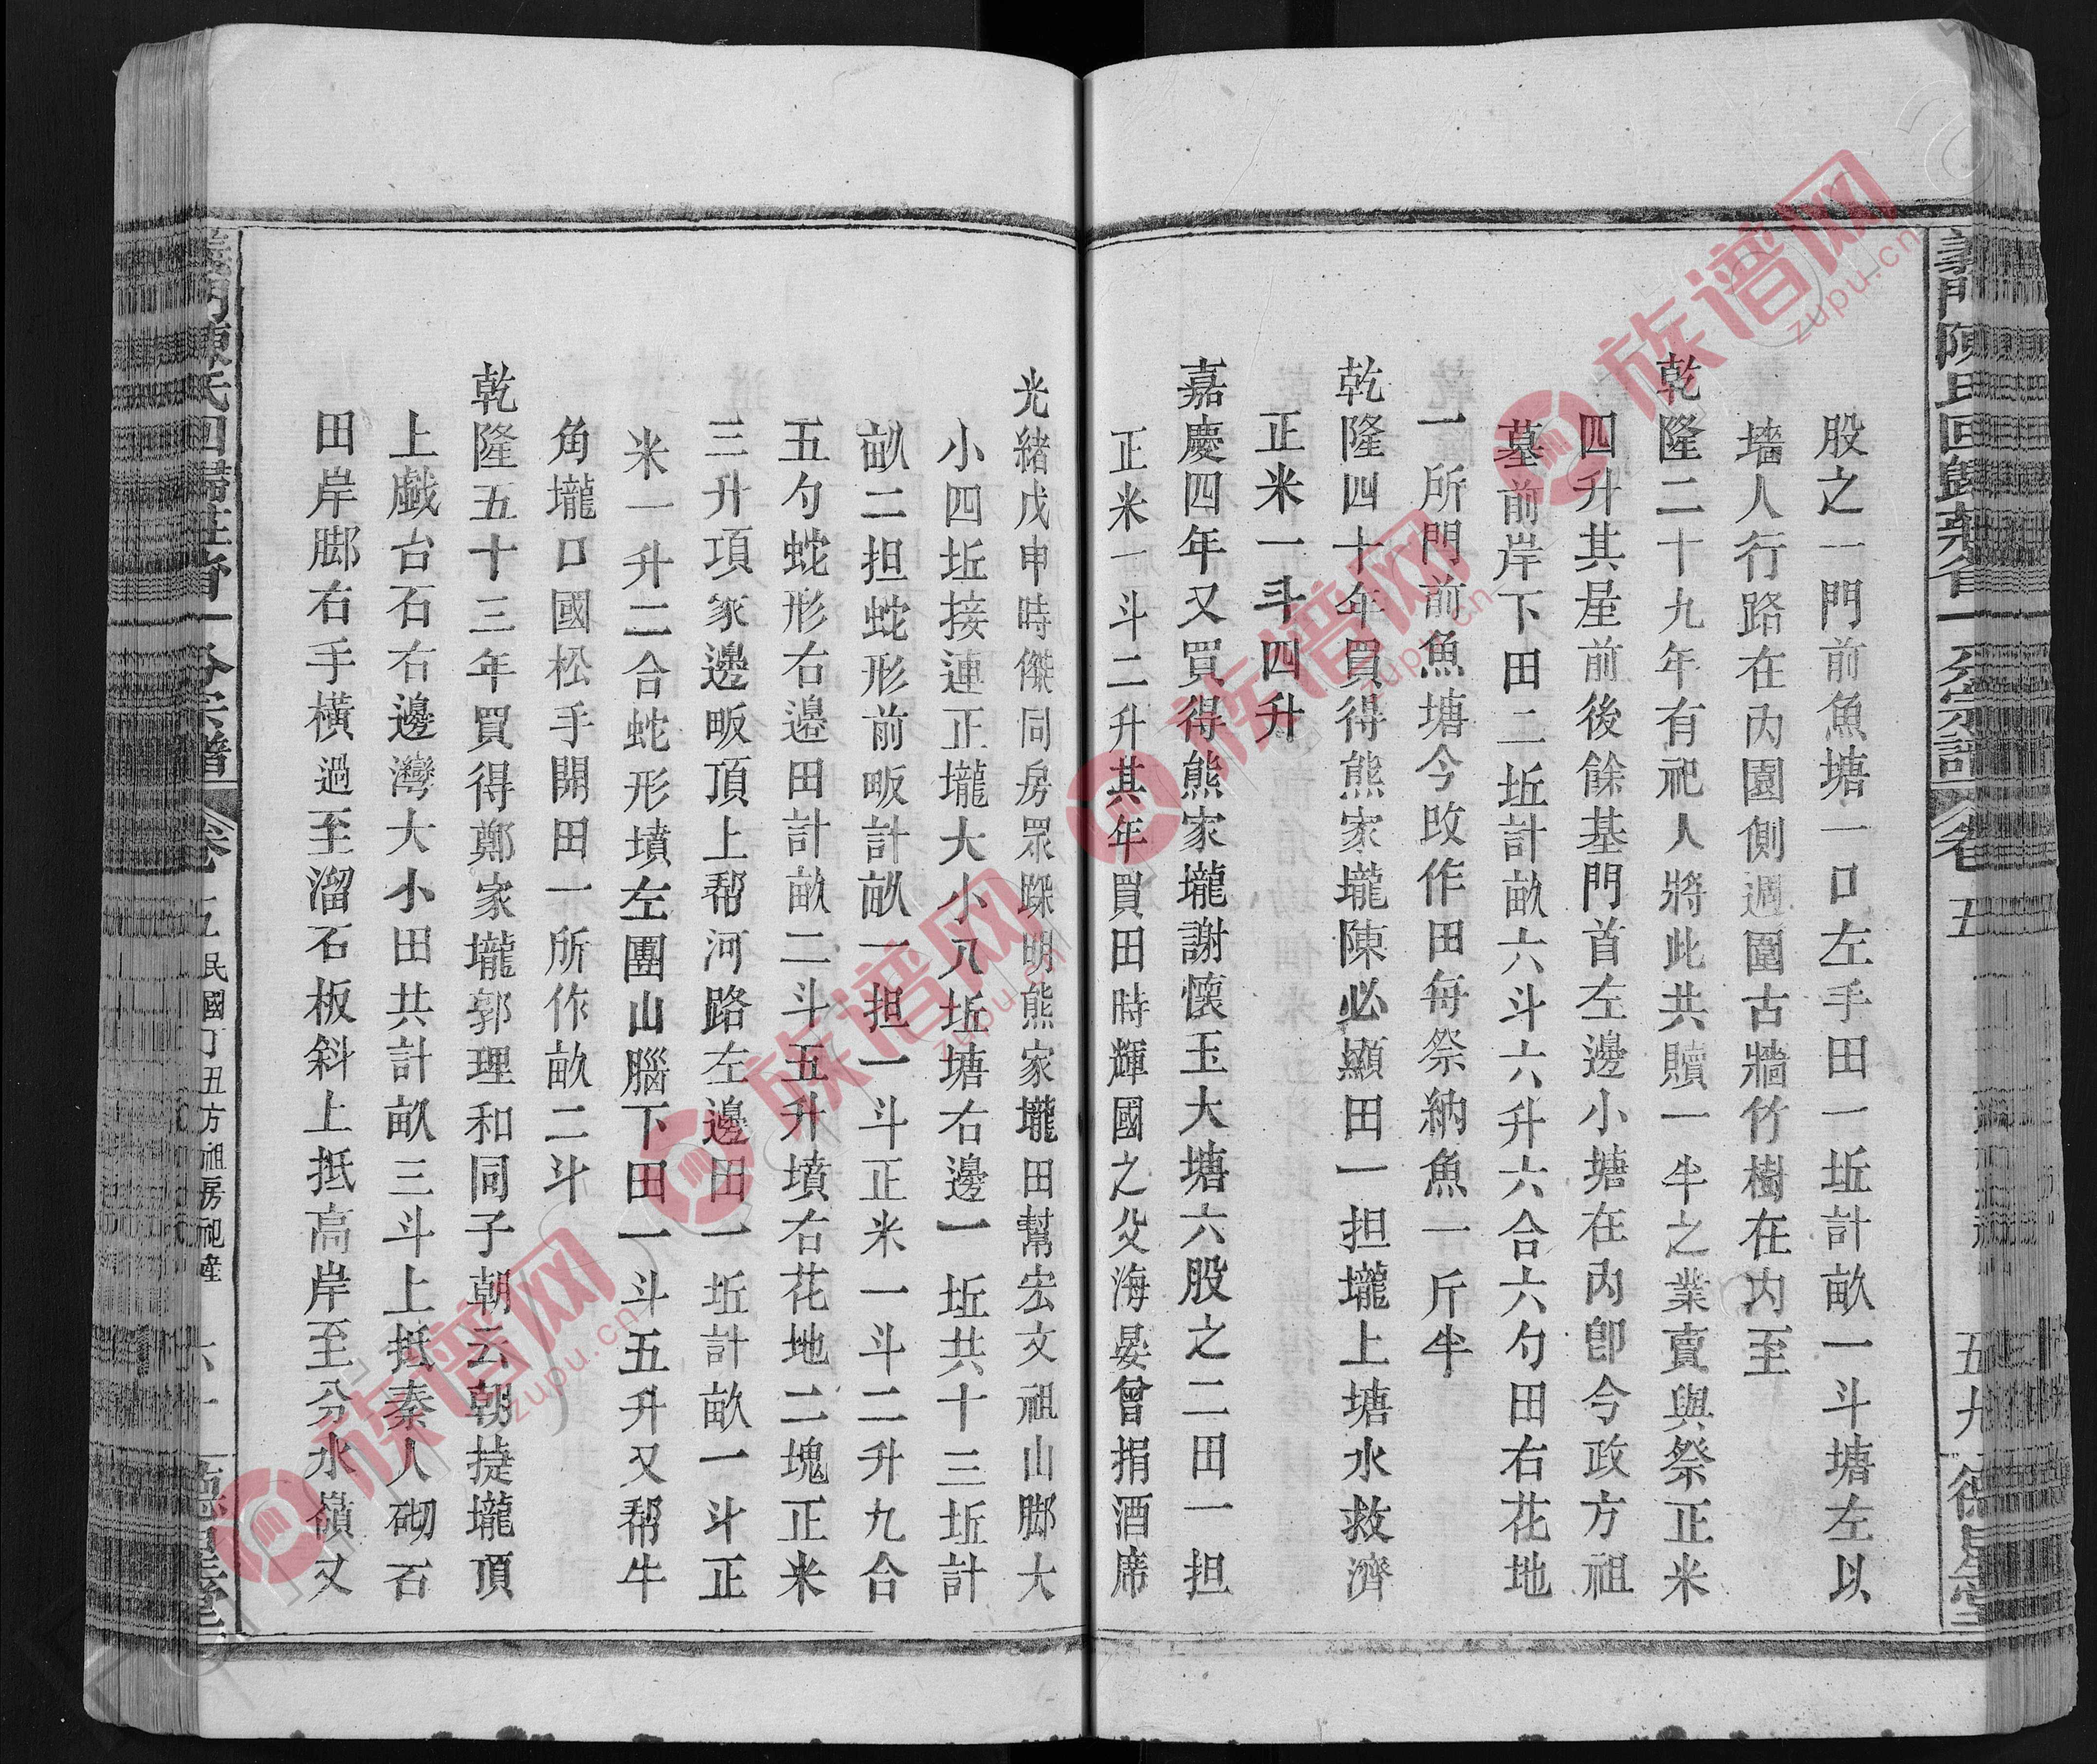 義門陳氏回歸莊省一公宗譜
卷五
五九
德星堂
股之一門前魚塘一口左手田一坵計畝一斗塘左以
墻人行路在內園側週圍古牆竹樹在內至
乾隆二十九年有祀人將此共贖一半之業賣與祭正米
四升其星前後餘基門首左邊小塘在內卽今政方祖
墓前岸下田二坵計畝六斗六升六合六勺田右花地
一所門前魚塘今改作田每祭納魚一斤半
乾隆四十年買得熊家壠陳必顯田一担壠上塘水救濟
正米一斗四升
嘉慶四年又買得熊家壠謝懷玉大塘六股之二田一担
正米一斗二升其年買田時輝國之父海晏曾捐酒席
光緒戊申時傑同房眾踩明熊家壠田幫宏文祖山脚大
小四坵接連正壠大小八坵塘右邊一坵共十三坵計
畝二担蛇形前畈計畝一担一斗正米一斗二升九合
五勺蛇形右邊田計畝二斗五升墳右花地二塊正米
三升項家邊畈頂上帮河路左邊田一坵計畝一斗正
米一升二合蛇形墳左團山腦下田一斗五升又帮牛
角壠口國松手開田一所作畝二斗
乾隆五十三年買得鄭家壠郭理和同子朝云朝捷壠頂
上戲台石右邊灣大小田共計畝三斗上抵秦人砌石
田岸脚右手橫過至溜石板斜上抵高岸至分水嶺又
義門陳氏回歸莊省一公宗譜
卷五
民國丁丑方祖房祀產
六十
德星堂
族谱网
zupu.cn
族谱网
zupu.cn
族谱网
zupu.cn
族谱网
zupu.cn